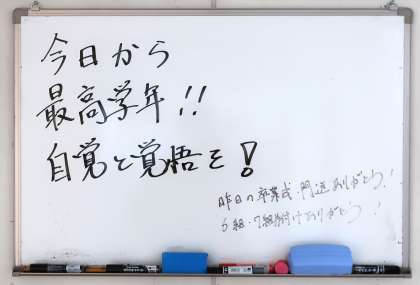 今日から
最高学年!!
自覚と覚悟を!
昨日の卒業式・門送ありがとう!
6組・7組片付けありがとう!